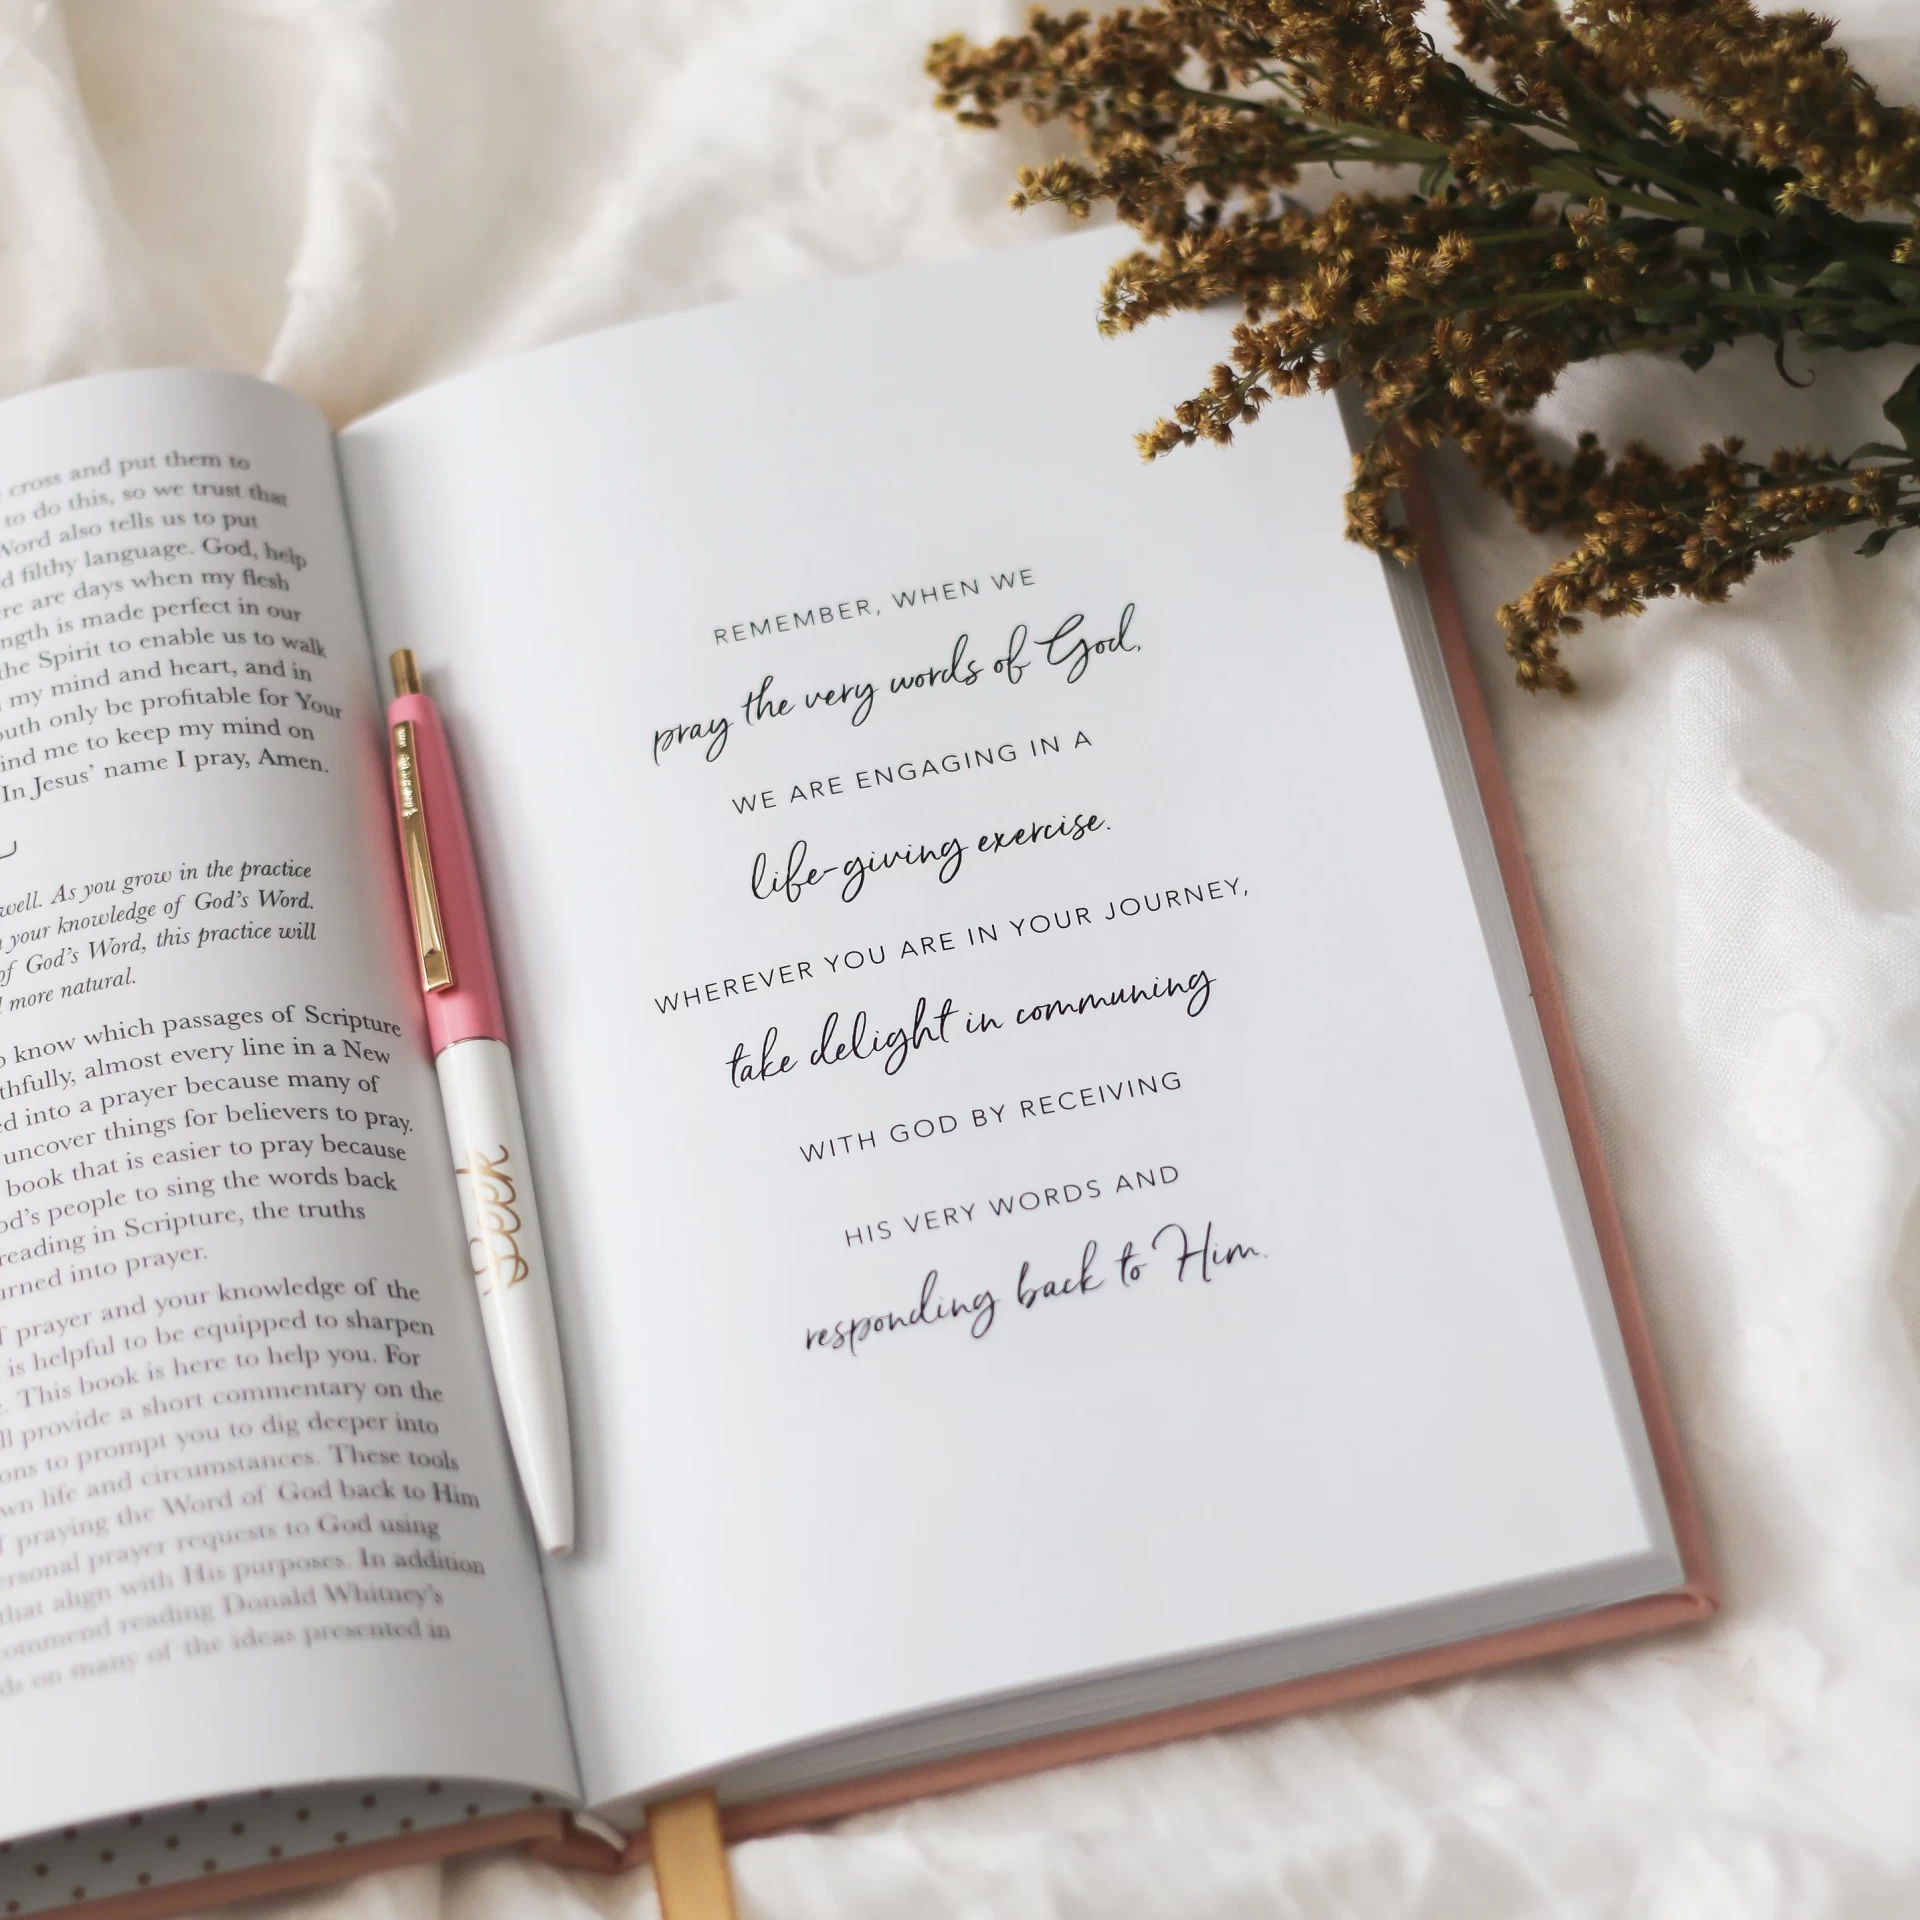 cross and put them to
to do this, so we trust that
Word also tells us to put
d filthy language. God, help
re are days when my flesh
ngth is made perfect in our
the Spirit to enable us to walk
my mind and heart, and in
outh only be profitable for Your
ind me to keep my mind on
In Jesus' name I pray, Amen.
well. As you grow in the practice
your knowledge of God's Word.
of God's Word, this practice will
more natural.
know which passages of Scripture
thfully, almost every line in a New
ed into a prayer because many of
uncover things for believers to pray.
book that is easier to pray because
od's people to sing the words back
reading in Scripture, the truths
urned into prayer.
f prayer and your knowledge of the
is helpful to be equipped to sharpen
. This book is here to help you. For
ll provide a short commentary on the
ons to prompt you to dig deeper into
wn life and circumstances. These tools
f praying the Word of God back to Him
ersonal prayer requests to God using
that align with His purposes. In addition
ommend reading Donald Whitney's
ds on many of the ideas presented in
Seek
REMEMBER, WHEN WE
pray the very words of God,
WE ARE ENGAGING IN A
life-giving exercise.
WHEREVER YOU ARE IN YOUR JOURNEY,
take delight in communing
WITH GOD BY RECEIVING
HIS VERY WORDS AND
responding back to Him.